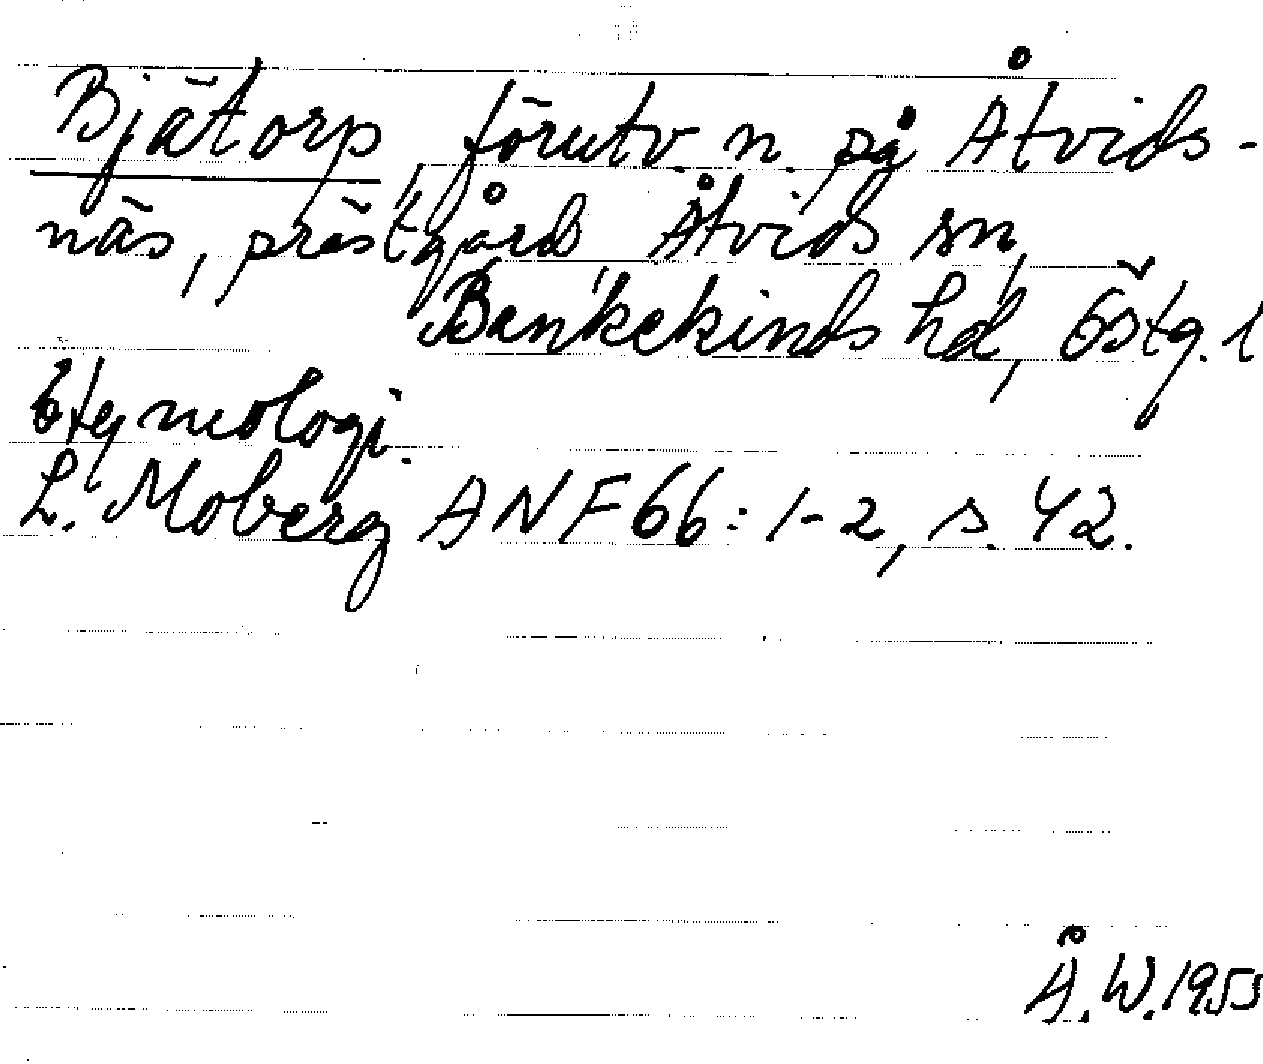 Bjätorp, förutv. n. på Åtvids-
näs, prästgård Åtvids sn,
Bankekinds hd, Östg. l
Etymologi.
L. Moberg ANF 66: 1-2, s. 42.
Å.W. 1953